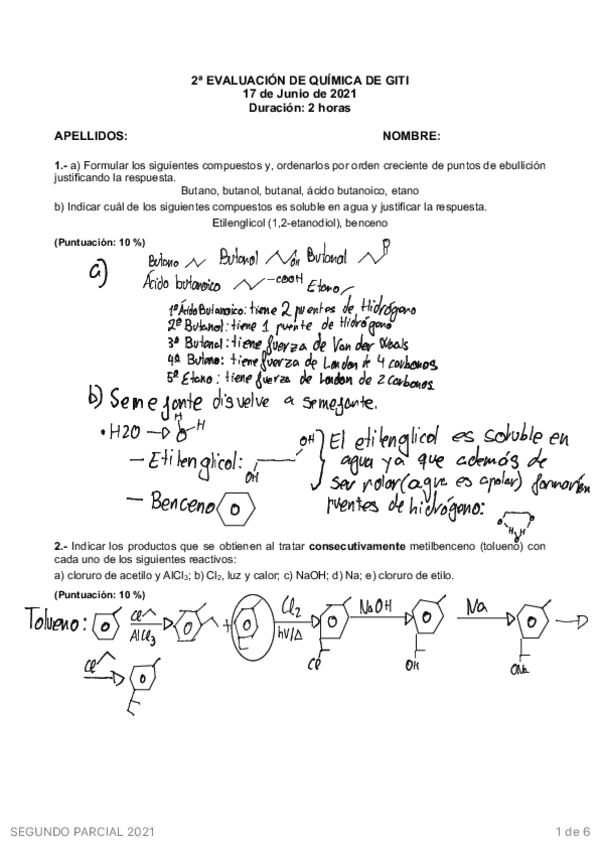 2ª EVALUACIÓN DE QUÍMICA DE GITI
17 de Junio de 2021
Duración: 2 horas
APELLIDOS: NOMBRE:
1.- a) Formular los siguientes compuestos y, ordenarlos por orden creciente de puntos de ebullición
justificando la respuesta.
Butano, butanol, butanal, ácido butanoico, etano
b) Indicar cuál de los siguientes compuestos es soluble en agua y justificar la respuesta.
Etilenglicol (1,2-etanodiol), benceno
(Puntuación: 10 %)
a)
Butano Butanol OH Butanal
Ácido butanoico -COOH Etano
1º Ácido Butanoico: tiene 2 puentes de Hidrógeno
2º Butanol: tiene 1 puente de Hidrógeno
3º Butanal: tiene fuerza de Van der Waals
4º Butano: tiene fuerza de London de 4 carbonos
5º Etano: tiene fuerza de London de 2 Carbonos
b) Semejante disuelve a semejante.
• H2O → H H
– Etilenglicol: OH OH
– Benceno
El etilenglicol es soluble en
agua ya que además de
ser polar (agua es apolar) formarán
puentes de hidrógeno:
H H
2.- Indicar los productos que se obtienen al tratar consecutivamente metilbenceno (tolueno) con
cada uno de los siguientes reactivos:
a) cloruro de acetilo y AlCl3; b) Cl2, luz y calor; c) NaOH; d) Na; e) cloruro de etilo.
(Puntuación: 10 %)
Tolueno: Cl AlCl3 + Cl2 hV/Δ Cl NaOH OH Na ONa
Cl
SEGUNDO PARCIAL 2021 1 de 6